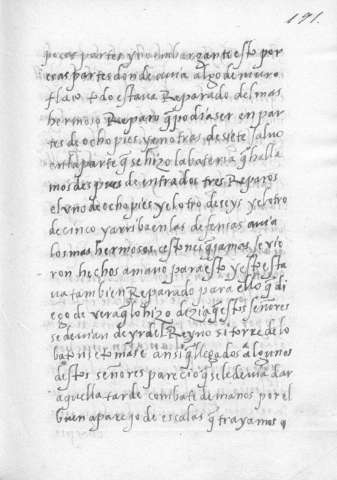 191.
pocas partes y no embargante esto por
otras partes donde avia algo de muro
flaco todo estava Reparado del mas
hermoso Reparo q̃ podia ser en par
tes de ocho pies, y en otras de siete salvo
en la parte q̃ se hizo la bateria q̃ halla
mos despues de entrados tres Reparos
el uno de ocho pies y el otro de seys y el otro
de cinco y arriba en las defensas avia
los mas hermosos cestones q̃ jamas se vie
ron hechos a mano para esto y esto esta
va tambien Reparado para ello q̃ di
ego de vera q̃ lo hizo dezia q̃ estos señores
se devian de yr del Reyno si torre de lo
baton se tomase ansi q̃ llegados a algunos
destos señores parecio q̃ se le devia dar
aquella tarde combate de manos por el
buen aparejo de escalas q̃ trayamos